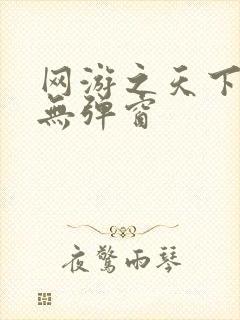 网游之天下
無彈窗
夜驚雨琴